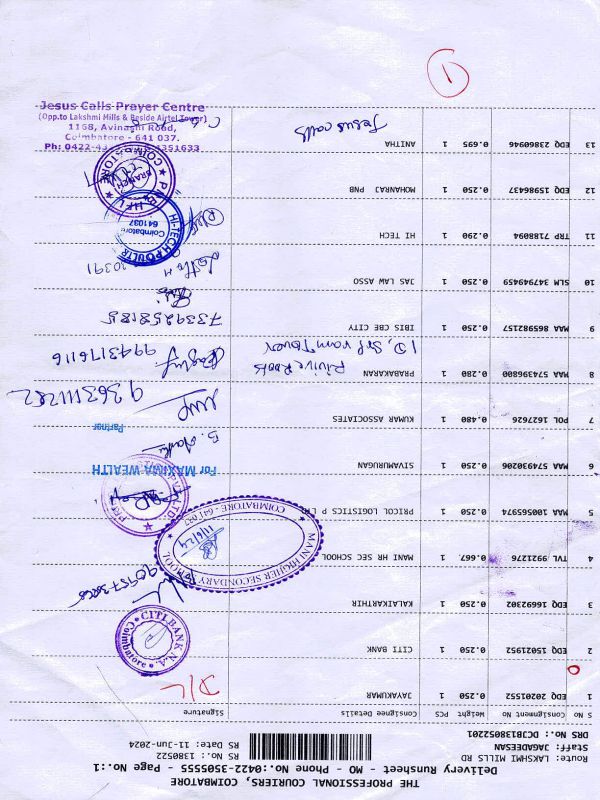 THE PROFESSIONAL COURIERS, COIMBATORE
Delivery Runsheet - MO - Phone No.:0422-3505555 - Page No.:1
Route: LAKSHMI MILLS RD
Staff: JAGADEESAN
DRS No.: DCJB138052201
RS No.: 1380522
RS Date: 11-Jun-2024
S No Consignment No Weight PCS Consignee Details Signature
1 EDQ 20201552 0.250 1 JAYAKUMAR D/L
2 EDQ 15021952 0.250 1 CITI BANK
CITI BANK N.A. Coimbatore
3 EDQ 16692302 0.250 1 KALAIKARTHIR
4 TVL 9921276 0.667 1 MANI HR SEC SCHOOL
MANI HIGHER SECONDARY SCHOOL
COIMBATORE - 641 037
11/6/24
5 MAA 100565974 0.250 1 PRICOL LOGISTICS P L
6 MAA 574930206 0.250 1 SIVAMURUGUN
For MAXIMA WEALTH
Partner
7 POL 1627626 0.480 1 KUMAR ASSOCIATES
8 MAA 574396800 0.280 1 PRABAKARAN
9943176116
9 MAA 869582157 0.250 1 IBIS CBE CITY 7339258185
10 SLM 347949459 0.250 1 JAS LAW ASSO
11 TRP 7188094 0.290 1 HI TECH
HI-TECH POULTR
Coimbatore
641037
12 EDQ 15986437 0.250 1 MOHANRAJ PNB
BRANCH
13 EDQ 23860946 0.695 1 ANITHA Jesus calls
Jesus Calls Prayer Centre
(Opp.to Lakshmi Mills & Beside Airtel Tower)
1168, Avinashi Road,
Coimbatore - 641 037.
Ph: 0422-4 4351633
1